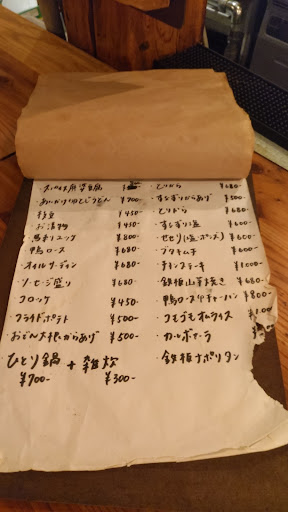 ・スパイス麻婆豆腐
・あいがけゆとじうどん ¥700-
・枝豆 ¥450-
・お漬物 ¥450-
・馬刺しユッケ ¥800-
・鴨ロース ¥680-
・オイルサーディン ¥680-
・ソーセージ盛り ¥680-
・コロッケ ¥450-
・フライドポテト ¥500-
・おでん大根からあげ ¥500-
ひとり鍋 + 雑炊
¥700- ¥300-
・とりから ¥680-
・すなぎりからあげ ¥500-
・とりから ¥680-
・すなぎり塩 ¥600-
・セセリ(塩・ポンズ) ¥600-
・ブタキムチ ¥600-
・チキンステーキ ¥1000-
・鉄板山芋焼き ¥680-
・鴨ロースチャーハン ¥800-
・オムライス
・カルボナーラ
・鉄板ナポリタン